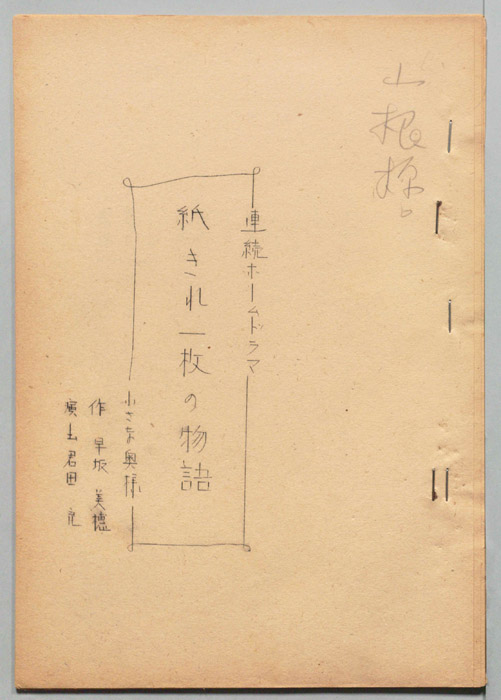 山根様
連続ホームドラマ
紙きれ一枚の物語
小さな奥様
作 早坂 美穂
演出 君田